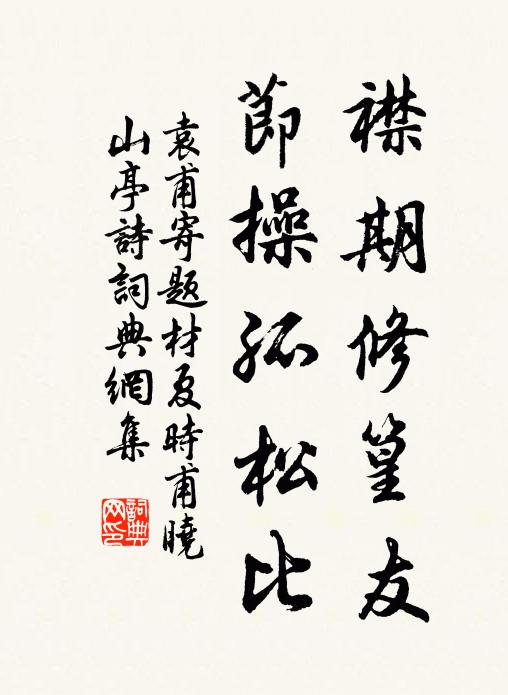 襟期修篁友
節操孤松比
袁甫寄题材夏時甫曉
山亭詩詞典網集
詞典
网印